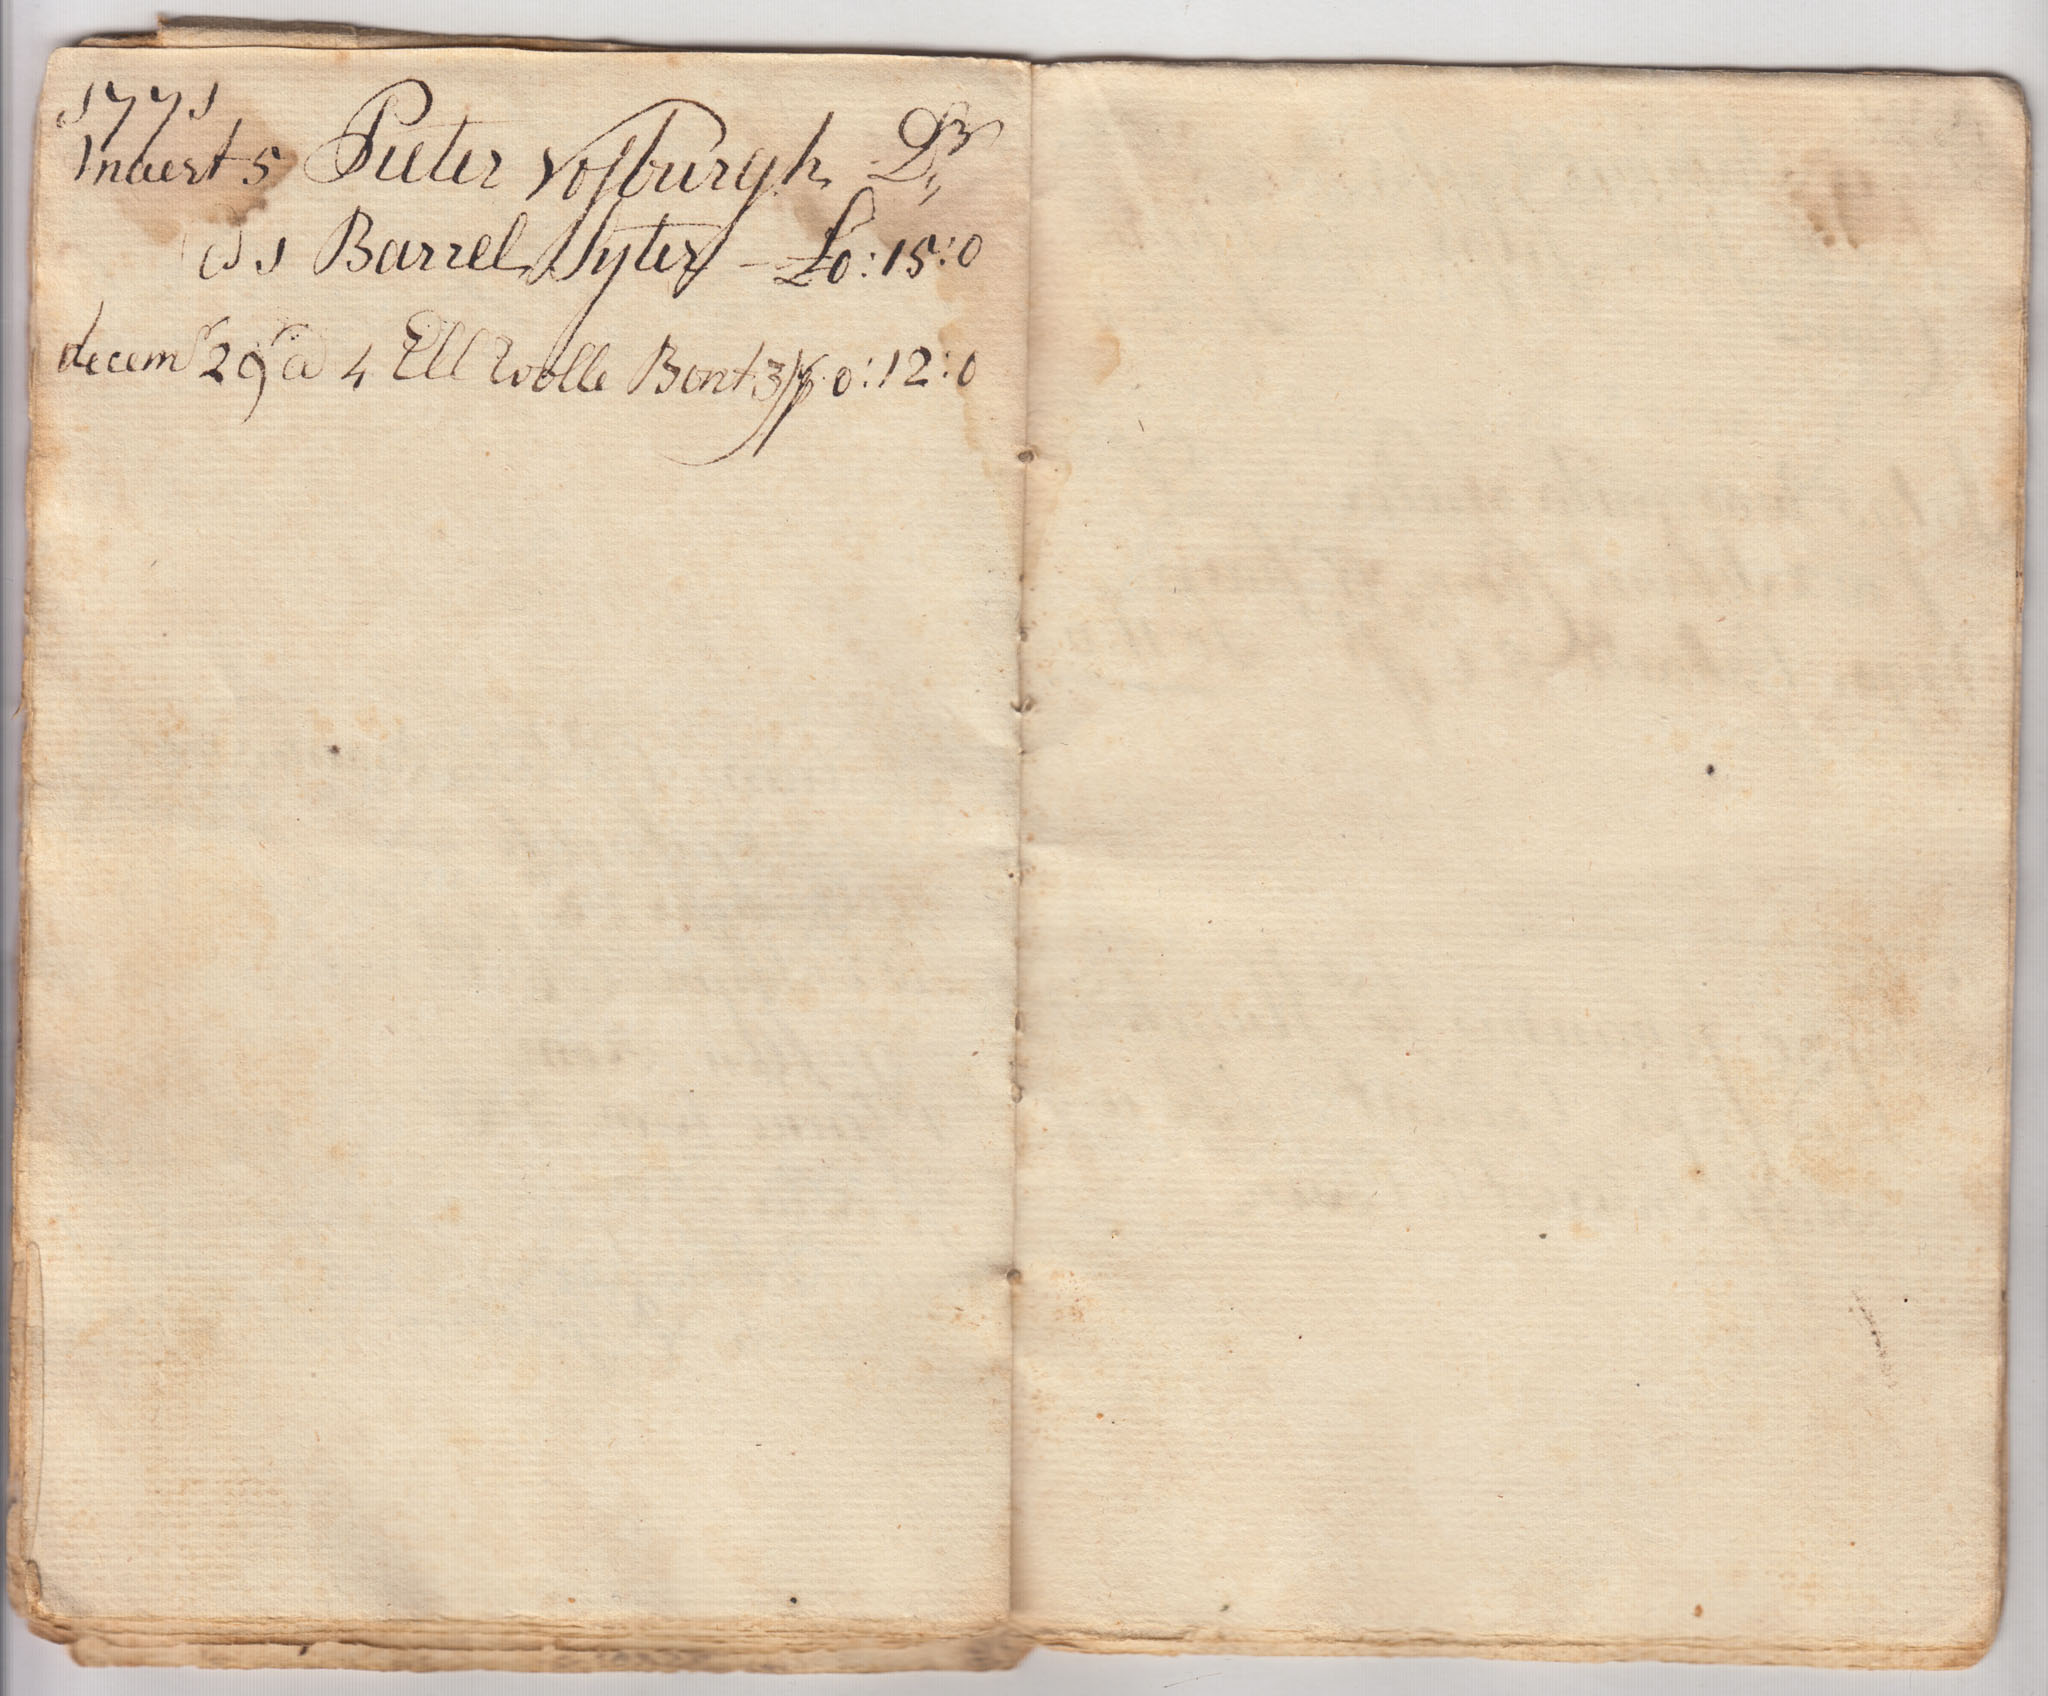 1771
maert 5 Pieter Vosburgh Dr
@ 1 Barrel Syter - £0:15:0
decemr 29 @ 4 Ell wolle Bont 3/ 0:12:0